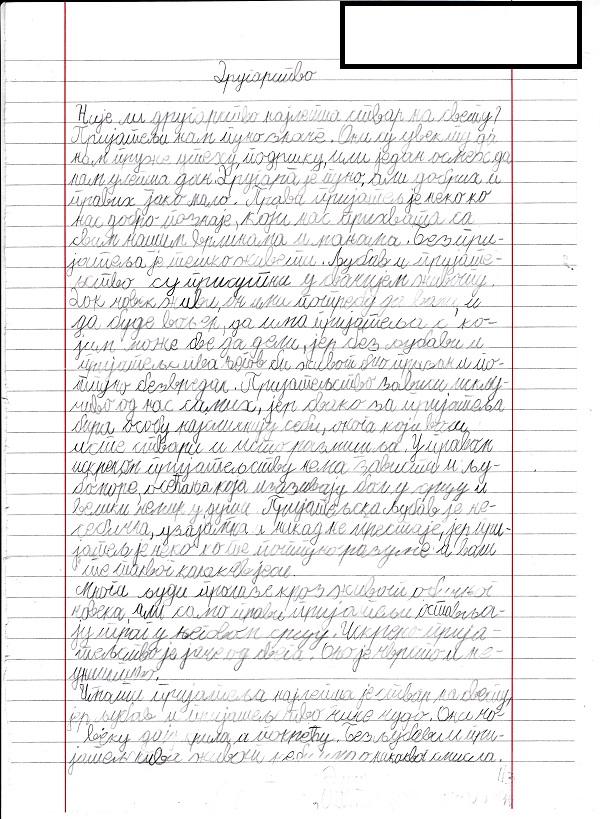 Другарство
Није ли другарство најлепша ствар на свету?
Пријатељи нам пуно значе. Они су увек ту да
нам пруже утеху, подршку, или један осмех да
нам улепша дан. Другара је пуно, али добрих и
правих јако мало. Прави пријатељ је неко ко
нас добро познаје, који нас прихвата са
свим нашим врлинама и манама. Без при-
јатеља је тешко живети. Љубав и пријате-
љство су присутни у свачијем животу.
Док човек живи, он има потребу да воли, и
да буде вољен, да има пријатеља с ко-
јим може све да дели, јер без љубави и
пријатељства његов би живот био празан и по-
тпуно безвредан. Пријатељство зависи искљу-
чиво од нас самих, јер свако за пријатеља
бира особу најсличнију себи, онога који воли
исте ствари и исто размишља. У правом
искреном пријатељству нема зависти и љу-
боморе, осећања која изазивају бол у срцу и
велики немир у души. Пријатељска љубав је не-
себична, узајамна и никад не престаје, јер при-
јатељ је неко ко те потпуно разуме и воли
те таквог какав јеси.
Многи људи пролазе кроз живот обичног
човека, али само прави пријатељи остављa-
ју траг у његовом срцу. Искрено прија-
тељство је јаче од свега. Оно је чврсто и не-
уништиво.
Имати пријатеља најлепша је ствар на свету,
јер љубав и пријатељство чине чудо. Они чо-
веку дају крила, и покрећу. Без љубави и при-
јатељства живот не би имао никаквог смисла.